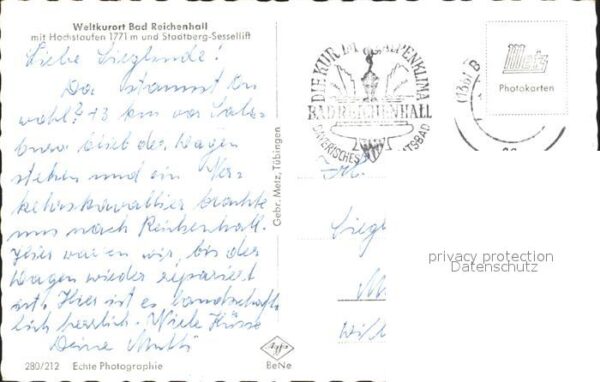 Weltkurort Bad Reichenhall
mit Hochstaufen 1771 m und Stadtberg-Sessellift
Liebe Sieglinde!
Da staunst Du
wohl? 13 km vor Salz-
burg blieb der Wagen
stehen und ein Ver-
kehrskavallier brachte
uns nach Reichenhall.
Hier waren wir, bis der
Wagen wieder repariert
ist. Hier ist es landschaft-
lich herrlich. Viele Küsse
Deine Mutti
280/212 Echte Photographie
Gebr. Metz, Tübingen
Agfa
BeNe
DIE KUR IM ALPENKLIMA
BAD REICHENHALL
BAYERISCHES STAATSBAD
(13b) B
Metz
Photokarten
Siegl
privacy protection
Datenschutz